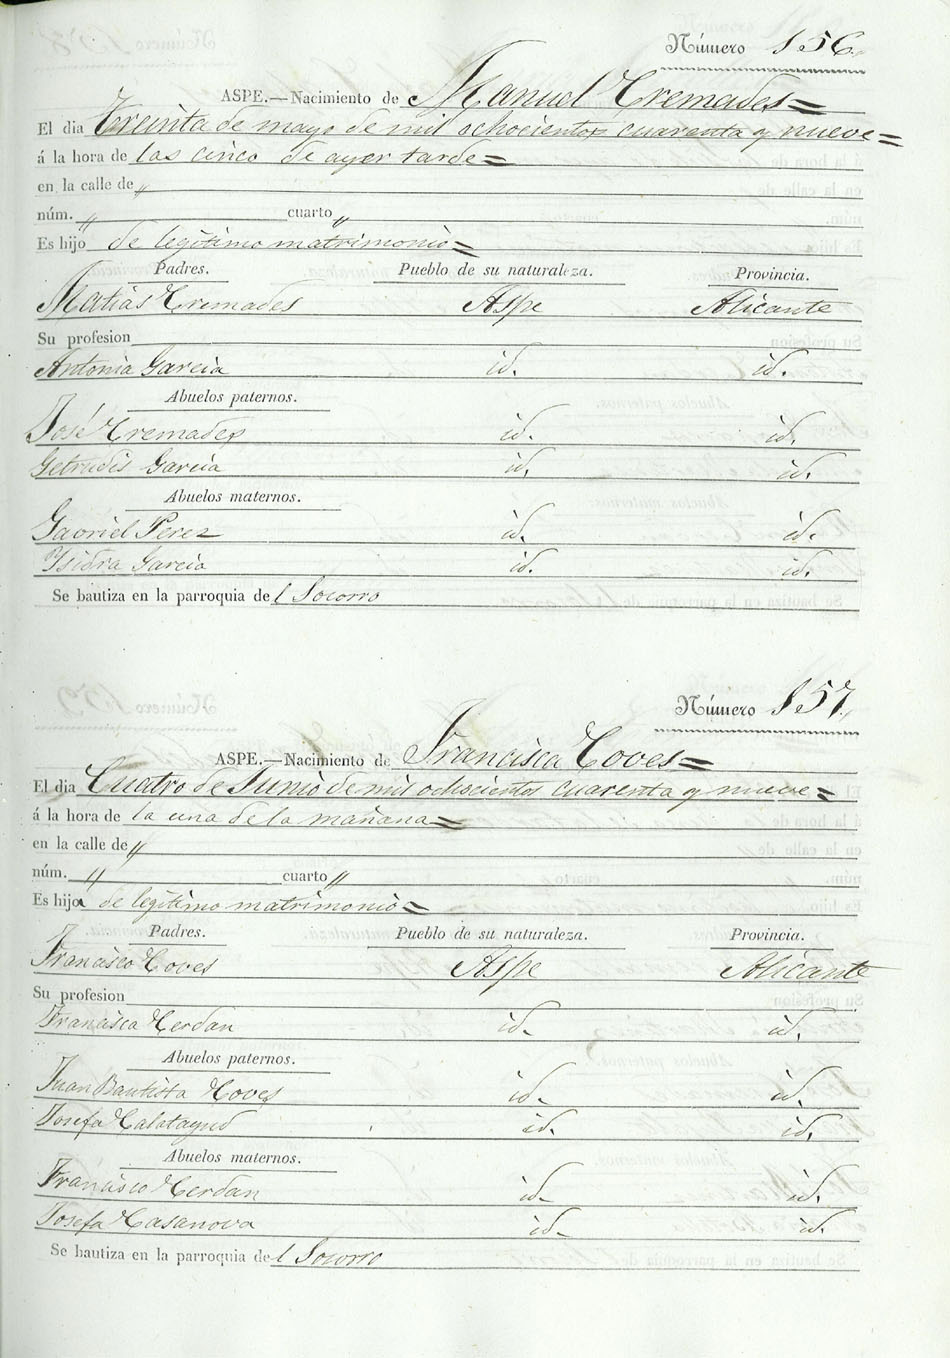 Número 156.
ASPE.—Nacimiento de Manuel Cremades=
El dia Treinta de mayo de mil ochocientos cuarenta y nueve=
á la hora de las cinco de ayer tarde=
en la calle de „
núm. „ cuarto „
Es hijo de legitimo matrimonio=
Padres. Pueblo de su naturaleza. Provincia.
Matias Cremades Aspe Alicante
Su profesion
Antonia Garcia id. id.
Abuelos paternos.
José Cremades id. id.
Getrudis Garcia id. id.
Abuelos maternos.
Gabriel Perez id. id.
Ysidra Garcia id. id.
Se bautiza en la parroquia del Socorro
Número 157.
ASPE.—Nacimiento de Francisca Coves=
El dia Cuatro de Junio de mil ochocientos cuarenta y nueve=
á la hora de la una de la mañana=
en la calle de „
núm. „ cuarto „
Es hija de legitimo matrimonio=
Padres. Pueblo de su naturaleza. Provincia.
Francisco Coves Aspe Alicante
Su profesion
Francisca Cerdan id. id.
Abuelos paternos.
Juan Bautista Coves id. id.
Josefa Calatayud id. id.
Abuelos maternos.
Francisco Cerdan id. id.
Josefa Casanova id. id.
Se bautiza en la parroquia del Socorro